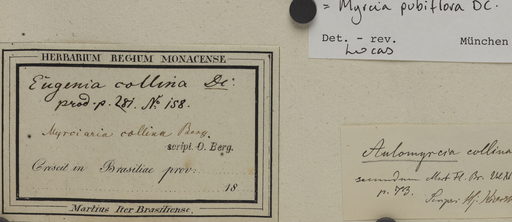 = Myrcia pubiflora DC.
Det. - rev.
Lucas
München
HERBARIUM REGIUM MONACENSE
Eugenia collina DC:
prod. p. 281. No. 158.
Myrciaria collina Berg.
script. O. Berg.
Crescit in Brasiliae prov:
18
Martius Iter Brasiliense.
Aulomyrcia collina
secundum Mart Fl. Br.
p. 73.